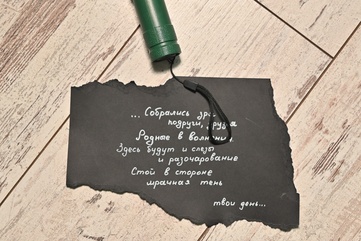 ... Собрались зря
подруги, друзья
Родное в волнении
Здесь будут и слезы
и разочарование
Стой в стороне
мрачная тень
твои день...